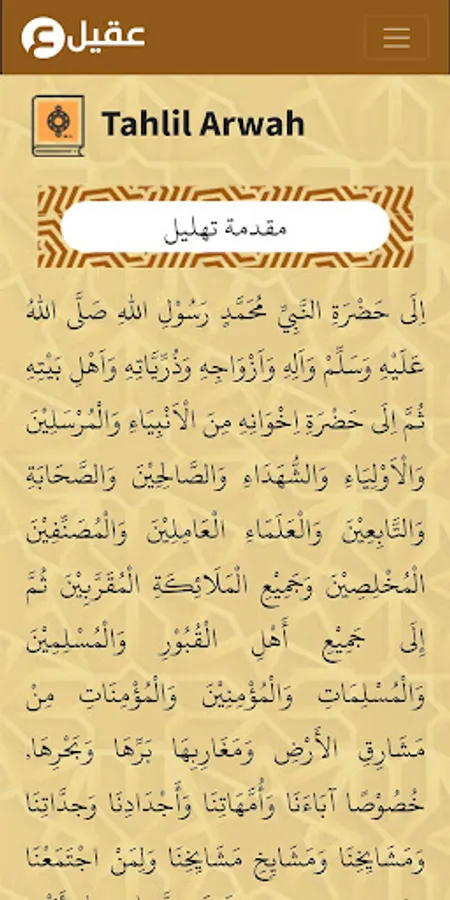 عقيل
Tahlil Arwah
مقدمة تهليل
اِلَى حَضْرَةِ النَّبِيِّ مُحَمَّدٍ رَسُوْلِ اللهِ صَلَّى اللهُ
عَلَيْهِ وَسَلَّمْ وَآلِهِ وَاَزْوَاجِهِ وَذُرِّيَّاتِهِ وَاَهْلِ بَيْتِهِ
ثُمَّ اِلَى حَضْرَةِ اِخْوَانِهِ مِنَ الْاَنْبِيَاءِ وَالْمُرْسَلِيْنَ
وَالْاَوْلِيَاءِ وَالشُّهَدَاءِ وَالصَّالِحِيْنَ وَالصَّحَابَةِ
وَالتَّابِعِيْنَ وَالْعَلَمَاءِ الْعَامِلِيْنَ وَالْمُصَنِّفِيْنَ
الْمُخْلِصِيْنَ وَجَمِيْعِ الْمَلَائِكَةِ الْمُقَرَّبِيْنَ ثُمَّ
إِلَى جَمِيْعِ أَهْلِ الْقُبُوْرِ وَالْمُسْلِمِيْنَ
وَالْمُسْلِمَاتِ وَالْمُؤْمِنِيْنَ وَالْمُؤْمِنَاتِ مِنْ
مَشَارِقِ الأَرْضِ وَمَغَارِبِهَا بَرِّهَا وَبَحْرِهَا,
خُصُوْصًا آبَاءَنَا وَأُمَّهَاتِنَا وَأَجْدَادِنَا وَجدَّاتِنَا
وَمَشَايِخِنَا وَمَشَايِخِ مَشَايِخِنَا وَلِمَنْ اجْتَمَعْنَا